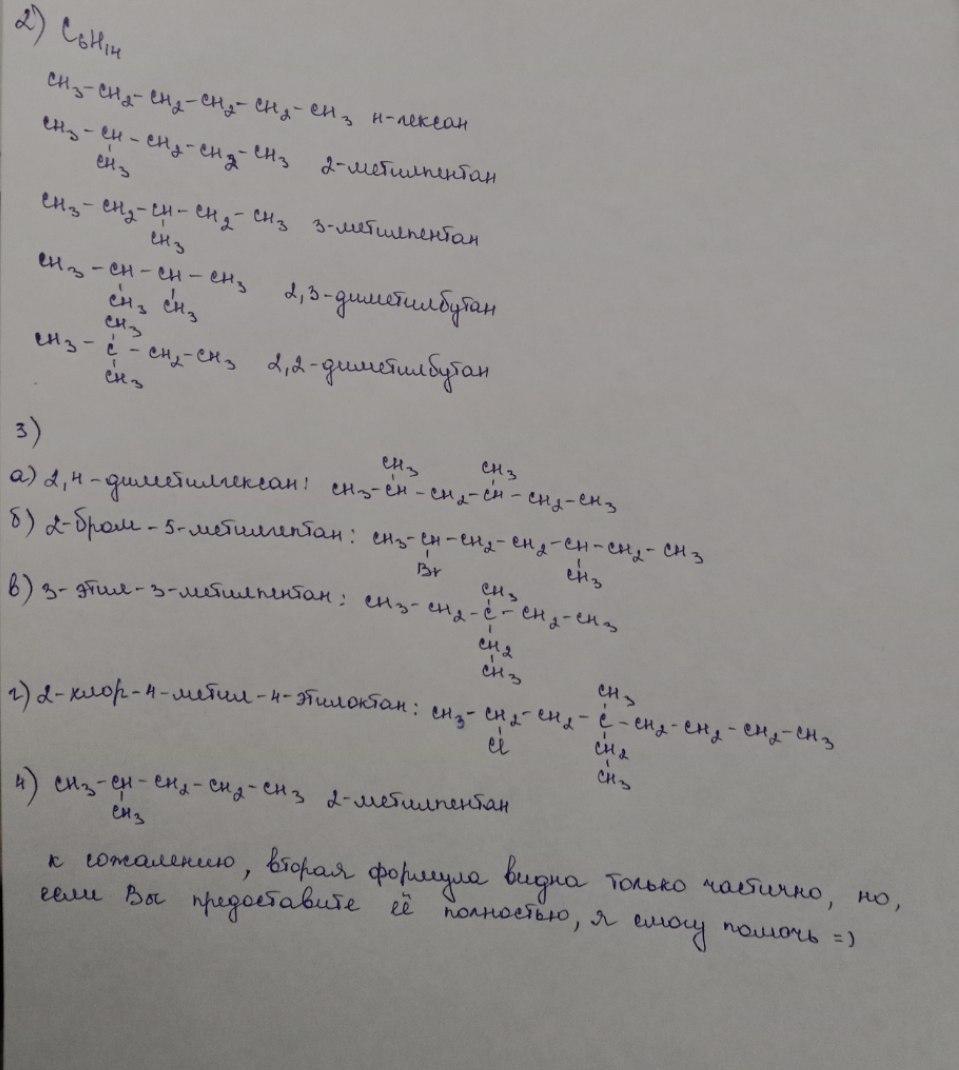 2) C₆H₁₄
CH₃-CH₂-CH₂-CH₂-CH₂-CH₃ н-гексан
CH₃-CH-CH₂-CH₂-CH₃ 2-метилпентан
CH₃
CH₃-CH₂-CH-CH₂-CH₃ 3-метилпентан
CH₃
CH₃-CH-CH-CH₃ 2,3-диметилбутан
CH₃ CH₃
CH₃
CH₃-C-CH₂-CH₃ 2,2-диметилбутан
CH₃
3)
CH₃ CH₃
а) 2,4-диметилгексан: CH₃-CH-CH₂-CH-CH₂-CH₃
б) 2-бром-5-метилгептан: CH₃-CH-CH₂-CH₂-CH-CH₂-CH₃
Br CH₃
CH₃
в) 3-этил-3-метилпентан: CH₃-CH₂-C-CH₂-CH₃
CH₂
CH₃
CH₃
г) 2-хлор-4-метил-4-этилоктан: CH₃-CH₂-CH₂-C-CH₂-CH₂-CH₂-CH₃
Cl CH₂
CH₃
4) CH₃-CH-CH₂-CH₂-CH₃ 2-метилпентан
CH₃
к сожалению, вторая формула видна только частично, но,
если Вы предоставите её полностью, я смогу помочь =)